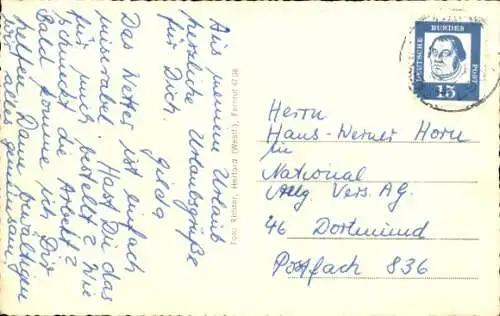 Aus meinem Urlaub
herzliche Urlaubsgrüße
für Dich. Gilda
Das Wetter ist einfach
miserabel. Hast Du das
für mich bestellt? Wie
schmeckt die Arbeit?
Bald komme ich Dir
helfen. Dann bewältigen
wir alles gemeinsam.
Foto Ritster, Herford (Westf.), Fernruf 47 08
DEUTSCHE
BUNDES
POST
15
Herrn
Hans-Werner Horn
in
National
Allg. Vers. AG.
46 Dortmund
Postfach 836